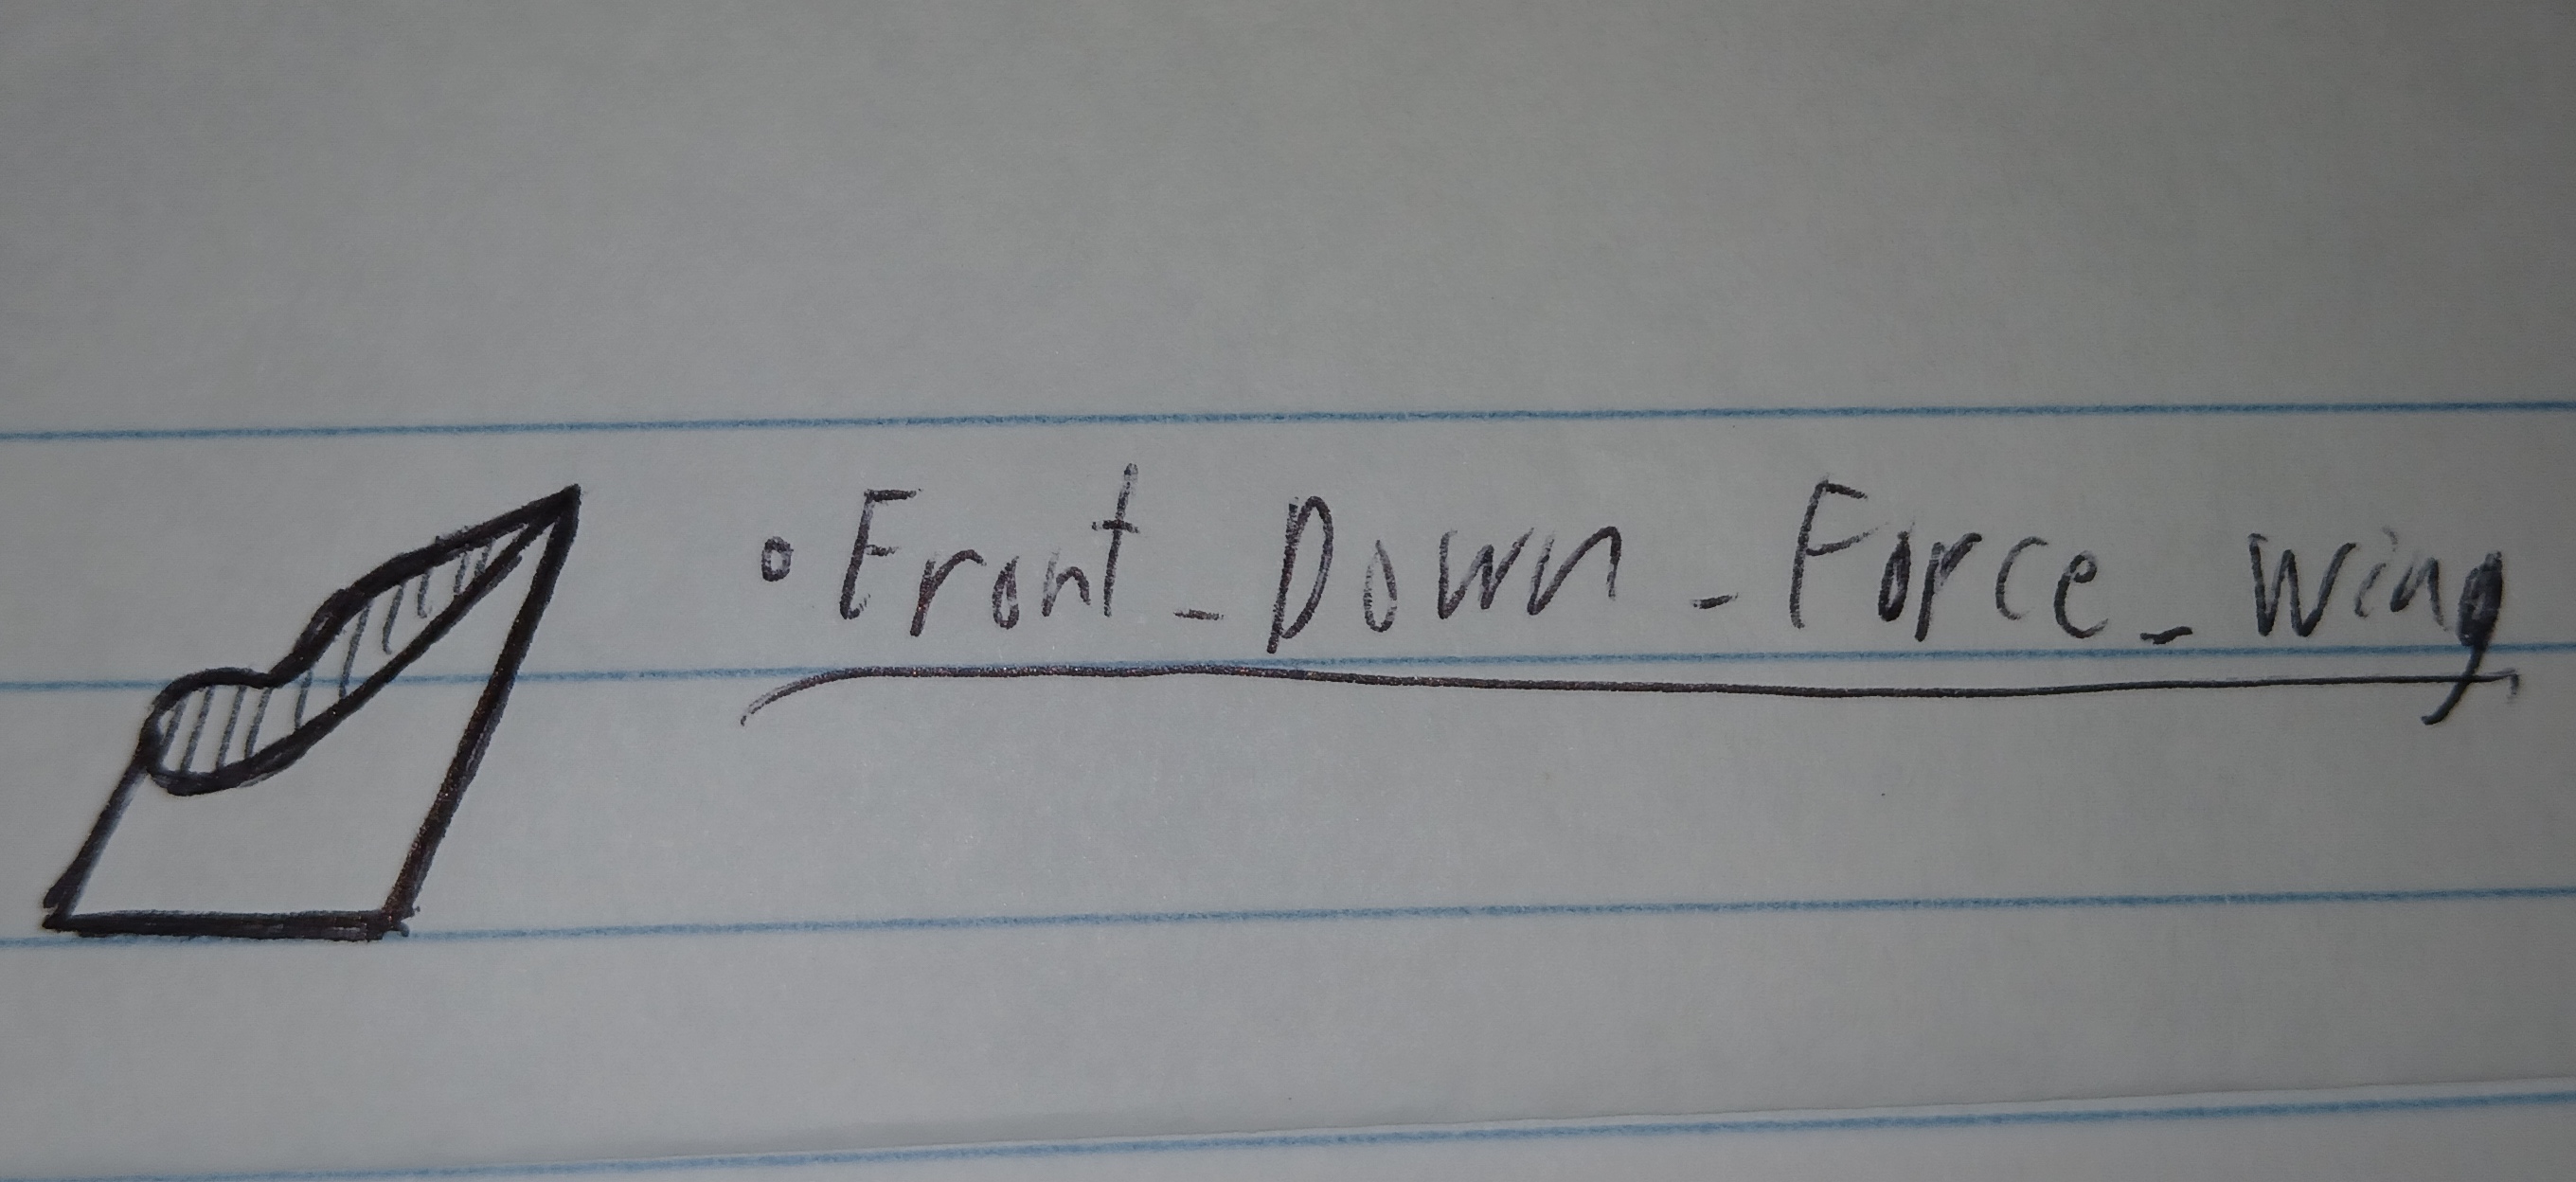 • Front_Down_Force_Wing